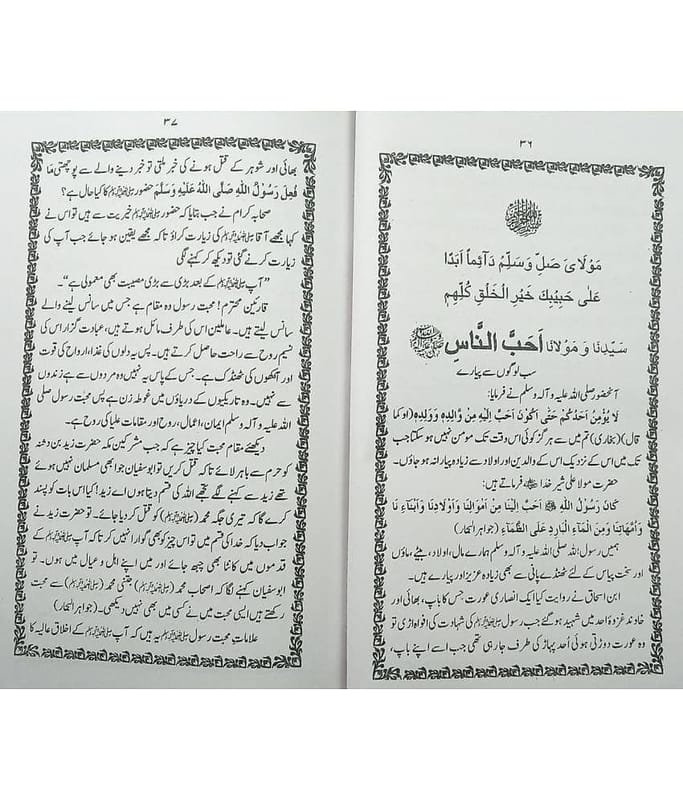 ۳۶
مَوْلَایَ صَلِّ وَسَلِّمْ دَآئِماً اَبَدًا
عَلٰی حَبِیْبِكَ خَیْرِ الْخَلْقِ کُلِّهِمِ
سَیِّدِنَا وَ مَوْلَانَا اَحَبَّ النَّاسِ ﷺ
سب لوگوں سے پیارے
آنحضور صلی اللہ علیہ وآلہ وسلم نے فرمایا:
لَا یُؤْمِنُ اَحَدُکُمْ حَتّٰی اَکُوْنَ اَحَبَّ اِلَیْهِ مِنْ وَّالِدِهٖ وَوَلَدِهٖ (اوکما
قال) (بخاری) تم میں سے ہرگز کوئی اس وقت تک مومن نہیں ہوسکتا جب
تک میں اس کے نزدیک اس کے والدین اور اولاد سے زیادہ پیارا نہ ہو جاؤں۔
حضرت مولا علی شیر خدا فرماتے ہیں:
کَانَ رَسُوْلُ اللهِ ﷺ اَحَبَّ اِلَیْنَا مِنْ اَمْوَالِنَا وَاَوْلَادِنَا وَاَبْنَاءِ نَا
وَاُمَّهَاتِنَا وَمِنَ الْمَآءِ الْبَارِدِ عَلَی الظَّمَآءِ (جواہر البحار)
ہمیں رسول اللہ صلی اللہ علیہ وآلہ وسلم ہمارے مال، اولاد، بیٹے، ماؤں
اور سخت پیاس کے لئے ٹھنڈے پانی سے بھی زیادہ عزیز اور پیارے ہیں۔
ابن اسحاق نے روایت کیا ایک انصاری عورت جس کا باپ، بھائی اور
خاوند غزوہ احد میں شہید ہوگئے جب رسول ﷺ کی شہادت کی افواہ اڑی تو
وہ عورت دوڑتی ہوئی اُحد پہاڑ کی طرف جارہی تھی جب اسے اپنے باپ،
۳۷
بھائی اور شوہر کے قتل ہونے کی خبر ملتی تو خبر دینے والے سے پوچھتی مَا
فَعِلَ رَسُوْلُ اللهِ صَلَّی اللهُ عَلَیْهِ وَسَلَّمَ حضور ﷺ کا کیا حال ہے؟
صحابہ کرام نے جب بتایا کہ حضور ﷺ خیریت سے ہیں تو اس نے
کہا مجھے آقا ﷺ کی زیارت کراؤ تاکہ مجھے یقین ہو جائے جب آپ کی
زیارت کرنے گئی تو دیکھ کر کہنے لگی
”آپ ﷺ کے بعد بڑی سے بڑی مصیبت بھی معمولی ہے“۔
قارئین محترم! محبت رسول وہ مقام ہے جس میں سانس لینے والے
سانس لیتے ہیں۔ عاملین اس کی طرف مائل ہوتے ہیں، عبادت گزار اس کی
نسیم روح سے راحت حاصل کرتے ہیں۔ پس یہ دلوں کی غذا، ارواح کی قوت
اور آنکھوں کی ٹھنڈک ہے۔ جس کے پاس یہ نہیں وہ مردوں سے ہے زندوں
سے نہیں۔ وہ تاریکیوں کے دریاؤں میں غوطہ زن ہے یہی محبت رسول صلی
اللہ علیہ وآلہ وسلم ایمان، اعمال، روح اور مقامات علیا کی روح ہے۔
دیکھئے مقام محبت کیا چیز ہے کہ جب مشرکین مکہ حضرت زید بن دثنہ
کو حرم سے باہر لائے تاکہ قتل کریں تو ابوسفیان جو ابھی مسلمان نہیں ہوئے
تھے زید سے کہنے لگے تجھے اللہ کی قسم دیتا ہوں اے زید! کیا اس بات کو پسند
کرے گا کہ تیری جگہ محمد (ﷺ) کو قتل کر دیا جائے۔ تو حضرت زید نے
جواب دیا کہ خدا کی قسم میں تو اس چیز کو بھی گوارا نہیں کرتا کہ آپ ﷺ کے
قدموں میں کانٹا بھی چبھ جائے اور میں اپنے اہل و عیال میں ہوں۔ تو
ابوسفیان کہنے لگا کہ اصحاب محمد (ﷺ) جتنی محمد (ﷺ) سے محبت
رکھتے ہیں ایسی محبت میں نے کسی میں بھی نہیں دیکھی۔ (جواہر البحار)
علامات محبت رسول ﷺ یہ ہیں کہ آپ ﷺ کے اخلاق عالیہ کا